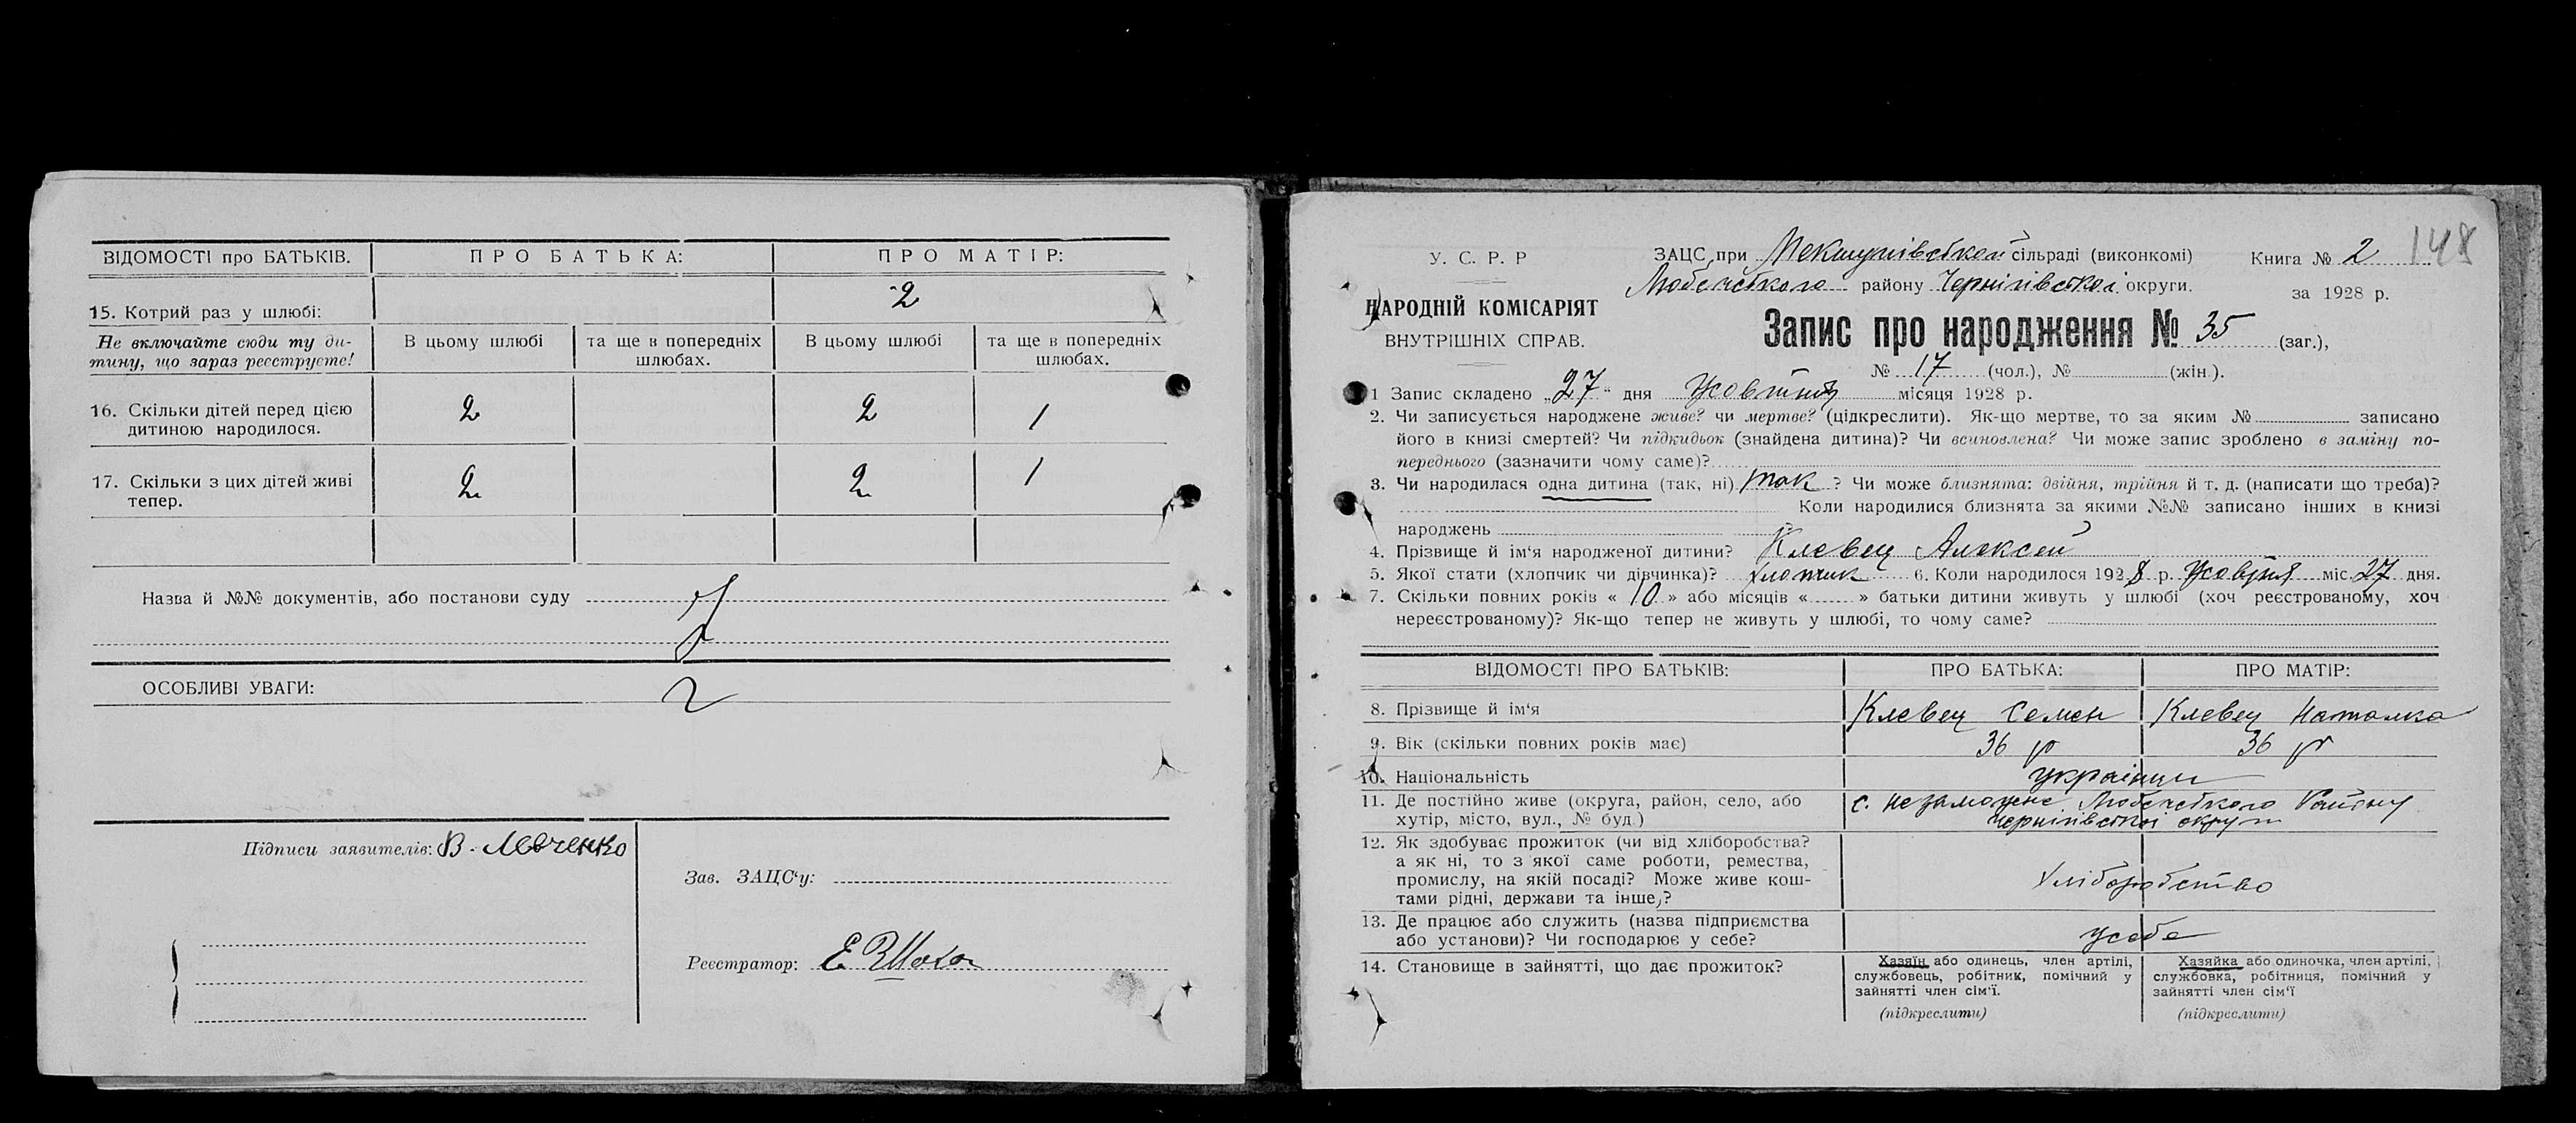 ВІДОМОСТІ про БАТЬКІВ. ПРО БАТЬКА: ПРО МАТІР:
15. Котрий раз у шлюбі: 2
Не включайте сюди ту ди-
тину, що зараз реєструєте!
В цьому шлюбі та ще в попередніх шлюбах. В цьому шлюбі та ще в попередніх шлюбах.
16. Скільки дітей перед цією
дитиною народилося. 2 2 1
17. Скільки з цих дітей живі
тепер. 2 2 1
Назва й №№ документів, або постанови суду
ОСОБЛИВІ УВАГИ:
Підписи заявителів: В. Левченко
Зав. ЗАЦС‘у:
Реєстратор:
У. С. Р. Р
НАРОДНІЙ КОМІСАРІЯТ
ВНУТРІШНІХ СПРАВ.
ЗАЦС при сільраді (виконкомі)
Любечського району Чернігівської округи.
Книга № 2 148
за 1928 р.
Запис про народження № 35 (заг.),
№ 17 (чол.), № (жін.).
1 Запис складено „27“ дня Жовтня місяця 1928 р.
2. Чи записується народжене живе? чи мертве? (цідкреслити). Як-що мертве, то за яким № записано
його в книзі смертей? Чи підкидьок (знайдена дитина)? Чи всиновлена? Чи може запис зроблено в заміну по-
переднього (зазначити чому саме)?
3. Чи народилася одна дитина (так, ні) так ? Чи може близнята: двійня, трійня й т. д. (написати що треба)?
Коли народилися близнята за якими №№ записано інших в книзі
народжень
4. Прізвище й ім‘я народженої дитини? Клевец Алексей
5. Якої стати (хлопчик чи дівчинка)? хлопчик 6. Коли народилося 1928 р. Жовтня міс. 27 дня.
7. Скільки повних років « 10 » або місяців « » батьки дитини живуть у шлюбі (хоч реєстрованому, хоч
нереєстрованому)? Як-що тепер не живуть у шлюбі, то чому саме?
ВІДОМОСТІ ПРО БАТЬКІВ: ПРО БАТЬКА: ПРО МАТІР:
8. Прізвище й ім‘я Клевец Семен Клевец Наталка
9. Вік (скільки повних років має) 36 р 36 р
10. Національність українци
11. Де постійно живе (округа, район, село, або
хутір, місто, вул., № буд.)
с. Незаможне Любечського Району
Чернігівської округи
12. Як здобуває прожиток (чи від хліборобства?
а як ні, то з якої саме роботи, ремества,
промислу, на якій посаді? Може живе кош-
тами рідні, держави та інше,?
хліборобство
13. Де працює або служить (назва підприємства
або установи)? Чи господарює у себе?
усебе
14. Становище в зайнятті, що дає прожиток?
Хазяїн або одинець, член артілі,
службовець, робітник, помічний у
зайнятті член сім‘ї.
(підкреслити)
Хазяйка або одиночка, член артілі,
службовка, робітниця, помічний у
зайнятті член сім‘ї
(підкреслити)